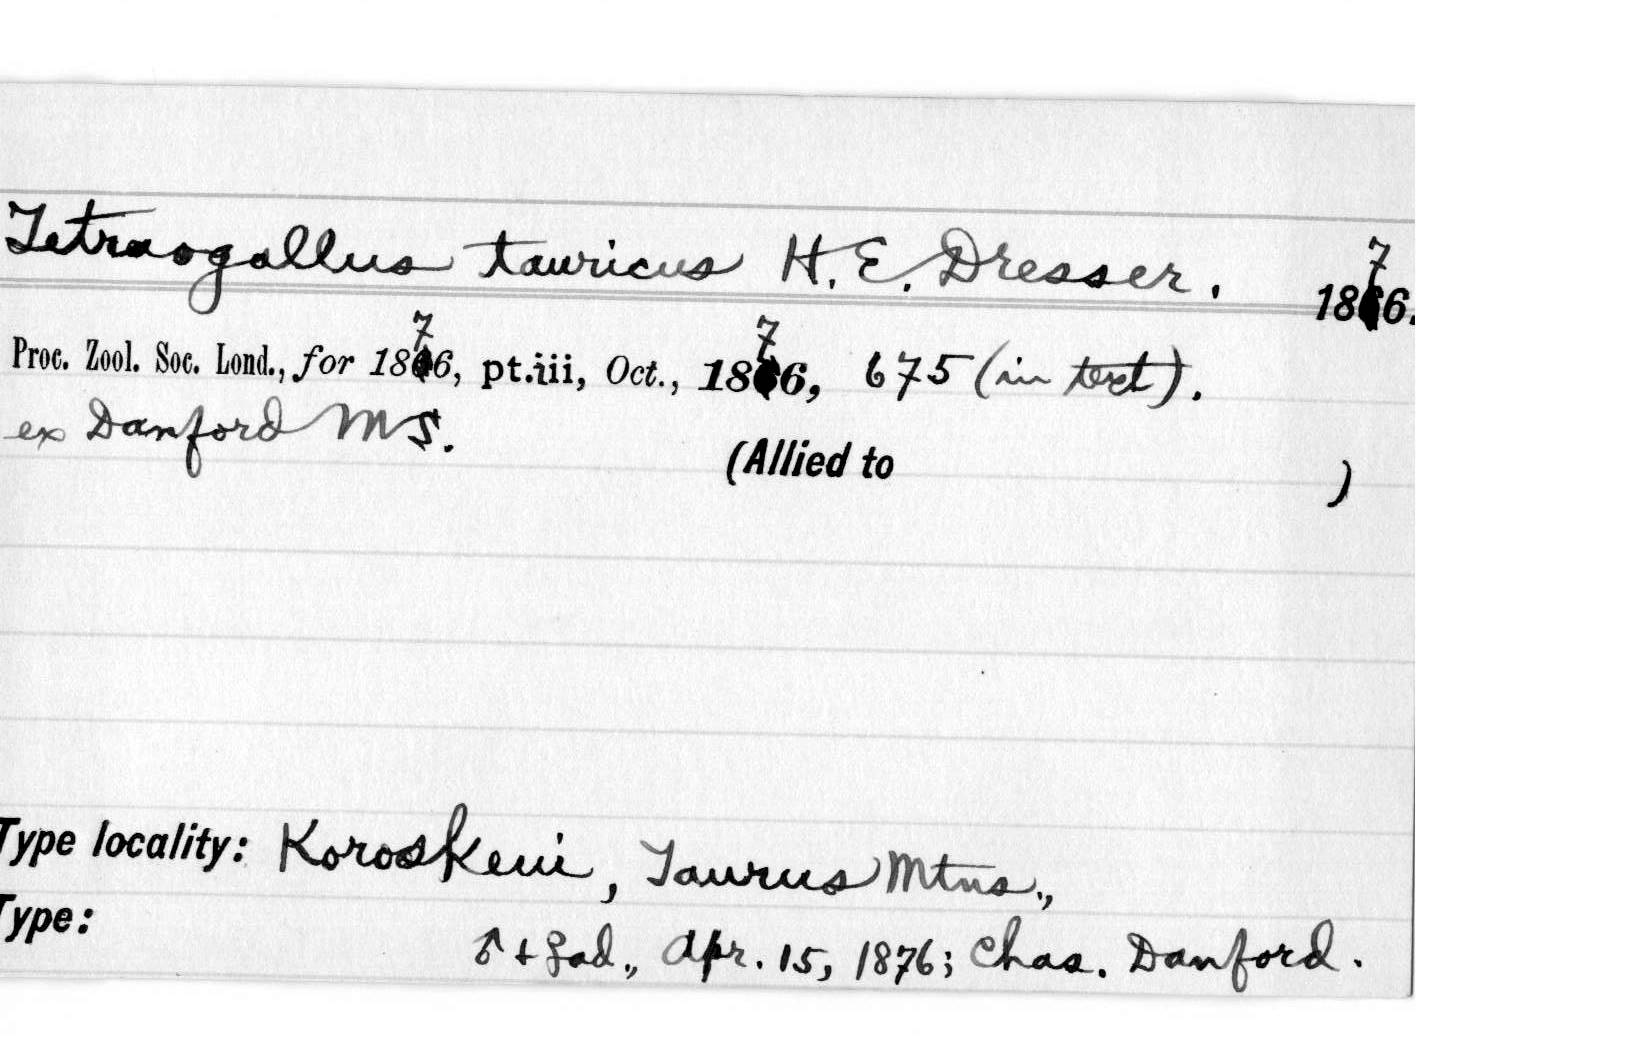 Tetraogallus tauricus H. E. Dresser. 1876.
Proc. Zool. Soc. Lond., for 1876, pt.iii, Oct., 1876, 675 (in text).
ex Danford MS.
(Allied to )
Type locality: Koroskeui, Taurus Mtns.,
Type:
♂ + ♀ ad., Apr. 15, 1876; Chas. Danford.